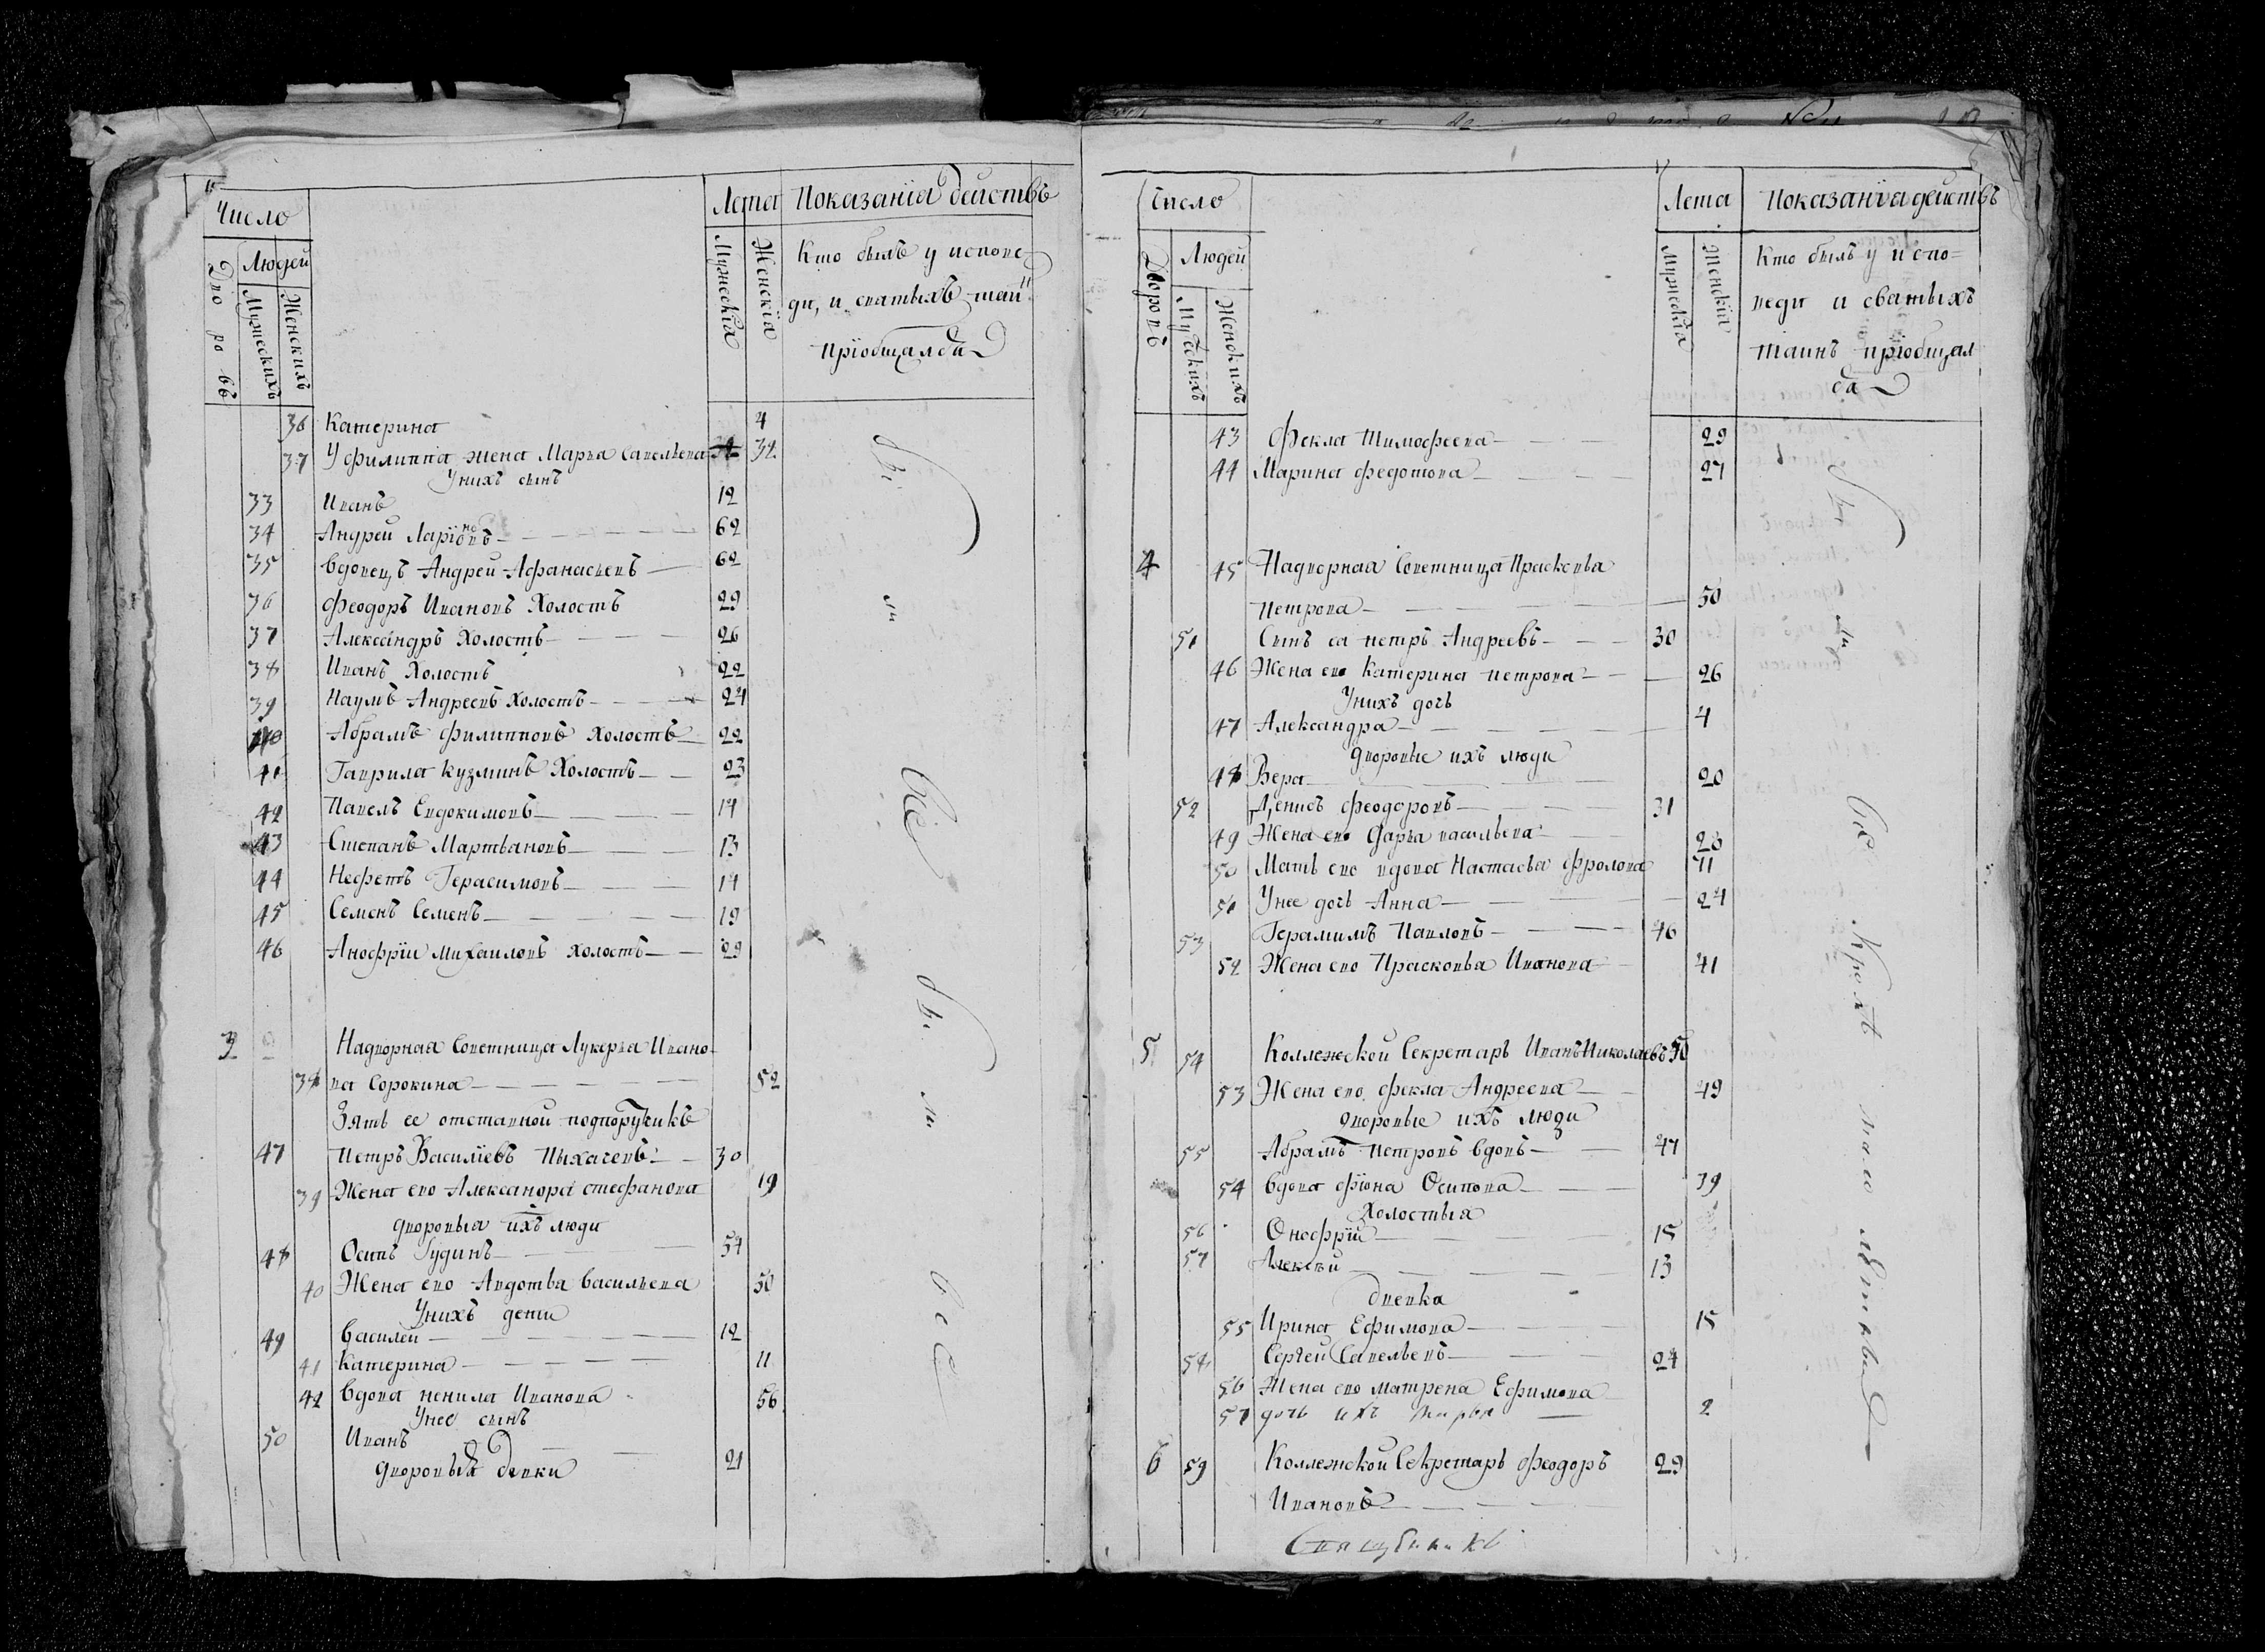 Число
Лета Показанїя действъ
Дворовъ
Людей
Мужескихъ
Женскихъ
Мужескїя
Женскїя
Кто былъ у испове-
ди, и святыхъ таи
прїобщался
36 Катерина 4
37 У Филиппа жена Марья Савельева 32
У нихъ сынъ
33 Иванъ 12
34 Андрей Ларїоновъ 62
35 вдовецъ Андрей Афанасьевъ 62
36 Феодоръ Ивановъ Холостъ 29
37 Александръ Холостъ 26
38 Иванъ Холостъ 22
39 Наумъ Андреевъ Холостъ 24
40 Абрамъ Филипповъ Холостъ 22
41 Гаврила Кузминъ Холостъ 23
42 Павелъ Евдокимовъ 14
43 Степанъ Мартьяновъ 13
44 Нефетъ Герасимовъ 14
45 Семенъ Семенъ 19
46 Анофрїи Михаиловъ холостъ 29
3 Надворная Советница Лукерья Ивано-
38 ва Сорокина 52
Зять ее отставной подпоручикъ
47 Петръ Василїевъ Пыхачевъ 30
39 Жена ево Александра Стефанова 19
дворовыя ихъ люди
48 Осипъ Гудинъ 54
40 Жена ево Авдотья Васильева 50
У нихъ дети
49 Василеи 12
41 Катерина 11
42 вдова Ненила Иванова 56
У нее сынъ
50 Иванъ 21
дворовыя девки
бы
ли
всѣ
бы
ли
всѣ
Число
Лета Показанїя действъ
Дворовъ
Людей
Мужескихъ
Женскихъ
Мужескїя
Женскїя
Кто былъ у испо-
веди и святыхъ
таинъ прїобщал
ся
43 Фекла Тимофеева 29
44 Марина Федотова 27
4 45 Надворная Советница Прасковья
Петрова 50
51 Сынъ ея Петръ Андреевъ 30
46 Жена ево Катерина Петрова 26
У нихъ дочь
47 Александра 4
дворовые ихъ люди
48 Вера 20
52 Денисъ Феодоровъ 31
49 Жена ево Дарья Васильева 26
50 Мать ево вдова Настасья Фролова 71
51 У нее дочь Анна 24
53 Герамимъ Павловъ 46
52 Жена ево Прасковья Иванова 41
5 54 Коллежской Секретарь Иванъ Николаевъ 50
53 Жена ево Фекла Андреева 49
дворовые ихъ люди
55 Абрамъ Петровъ вдовъ 47
54 вдова Фїона Осипова 39
Холостыя
56 Онофрїй 15
57 Алексѣи 13
девка
55 Ирина Ефимова 15
58 Сергеи Савельевъ 24
56 Жена ево Матрена Ефимова
57 дочь ихъ Марья 2
6 59 Коллежской Секретарь Феодоръ 29
Ивановъ
бы
ли
всѣ
Кромѣ
мало
лѣтныхъ